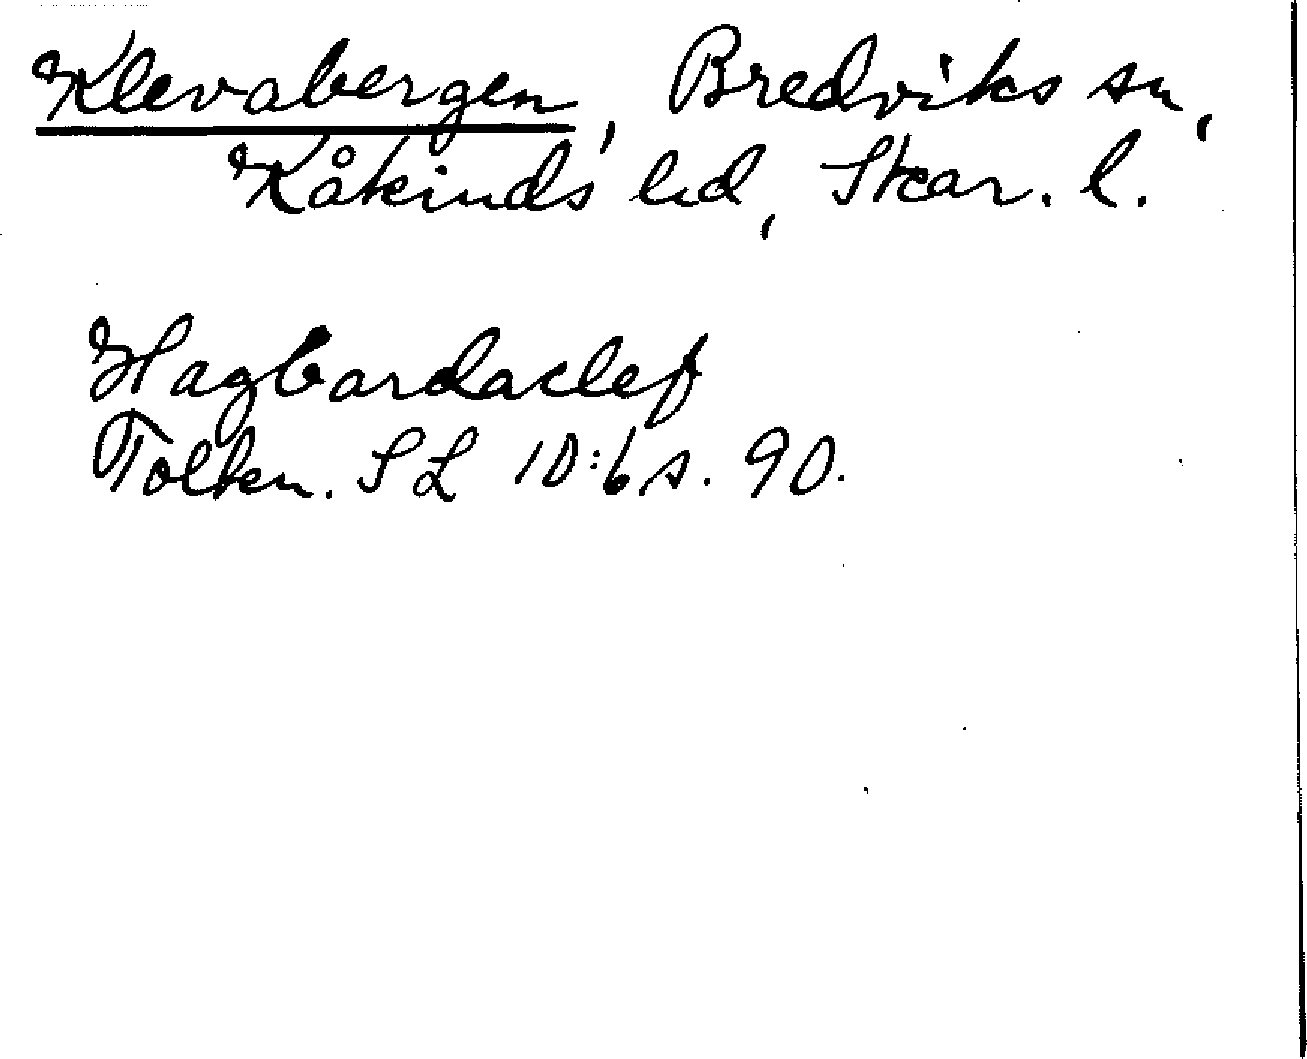 Klevabergen, Bredviks sn,
Kåkinds hd, Skar. l.
Hagbardaclef
Tolkn. SL 10:6 s. 90.